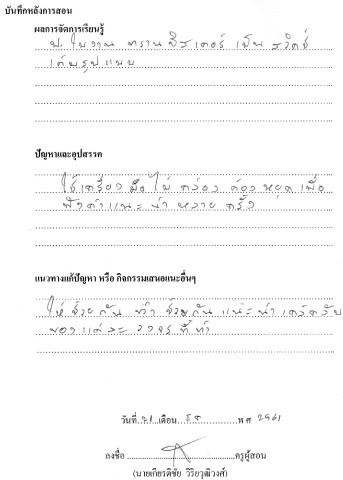 บันทึกหลังการสอน
ผลการจัดการเรียนรู้
ป. ใบงาน ทรานซิสเตอร์ เป็น สวิตช์
เต็มรูปแบบ
ปัญหาและอุปสรรค
ใช้เครื่องมือ ไม่ คล่อง ต้อง หยุด เพื่อ
ฟังคำแนะนำ หลาย ครั้ง
แนวทางแก้ปัญหา หรือ กิจกรรมเสนอแนะอื่นๆ
ให้ ช่วย กัน ทำ ช่วยกัน แนะนำ
ของแต่ละ วงจร ที่ทำ
วันที่ 21 เดือน ธค พ ศ 2561
ลงชื่อ ครูผู้สอน
(นายเกียรติชัย วิริยวุฒิวงศ์)